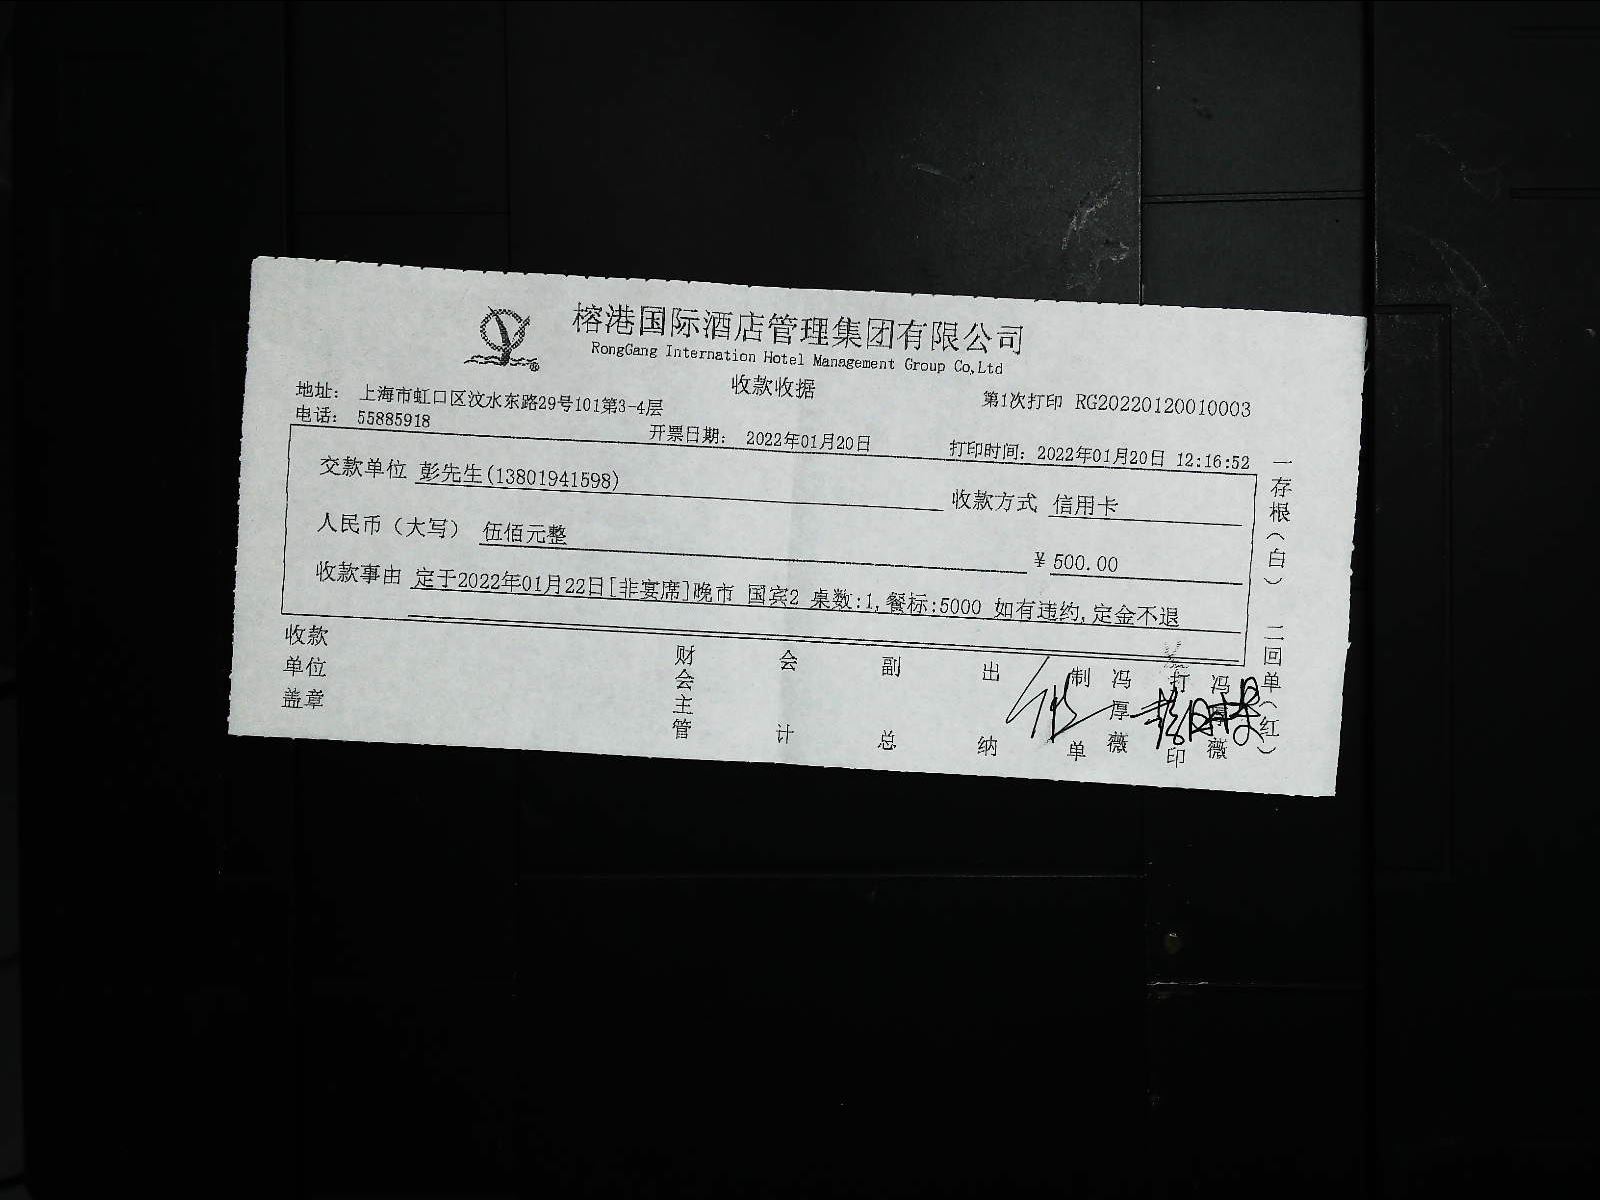 榕港国际酒店管理集团有限公司
RongGang Internation Hotel Management Group Co,Ltd
收款收据
地址： 上海市虹口区汶水东路29号101第3-4层 第1次打印 RG20220120010003
电话： 55885918 开票日期： 2022年01月20日 打印时间：2022年01月20日 12:16:52
交款单位 彭先生(13801941598) 收款方式 信用卡
人民币（大写） 伍佰元整 ¥ 500.00
收款事由 定于2022年01月22日[非宴席]晚市 国宾2 桌数:1,餐标:5000 如有违约,定金不退
收款单位盖章 财会主管 会计 副总 出纳 制单 冯厚薇 打印 冯厚薇
一存根（白） 二回单（红）